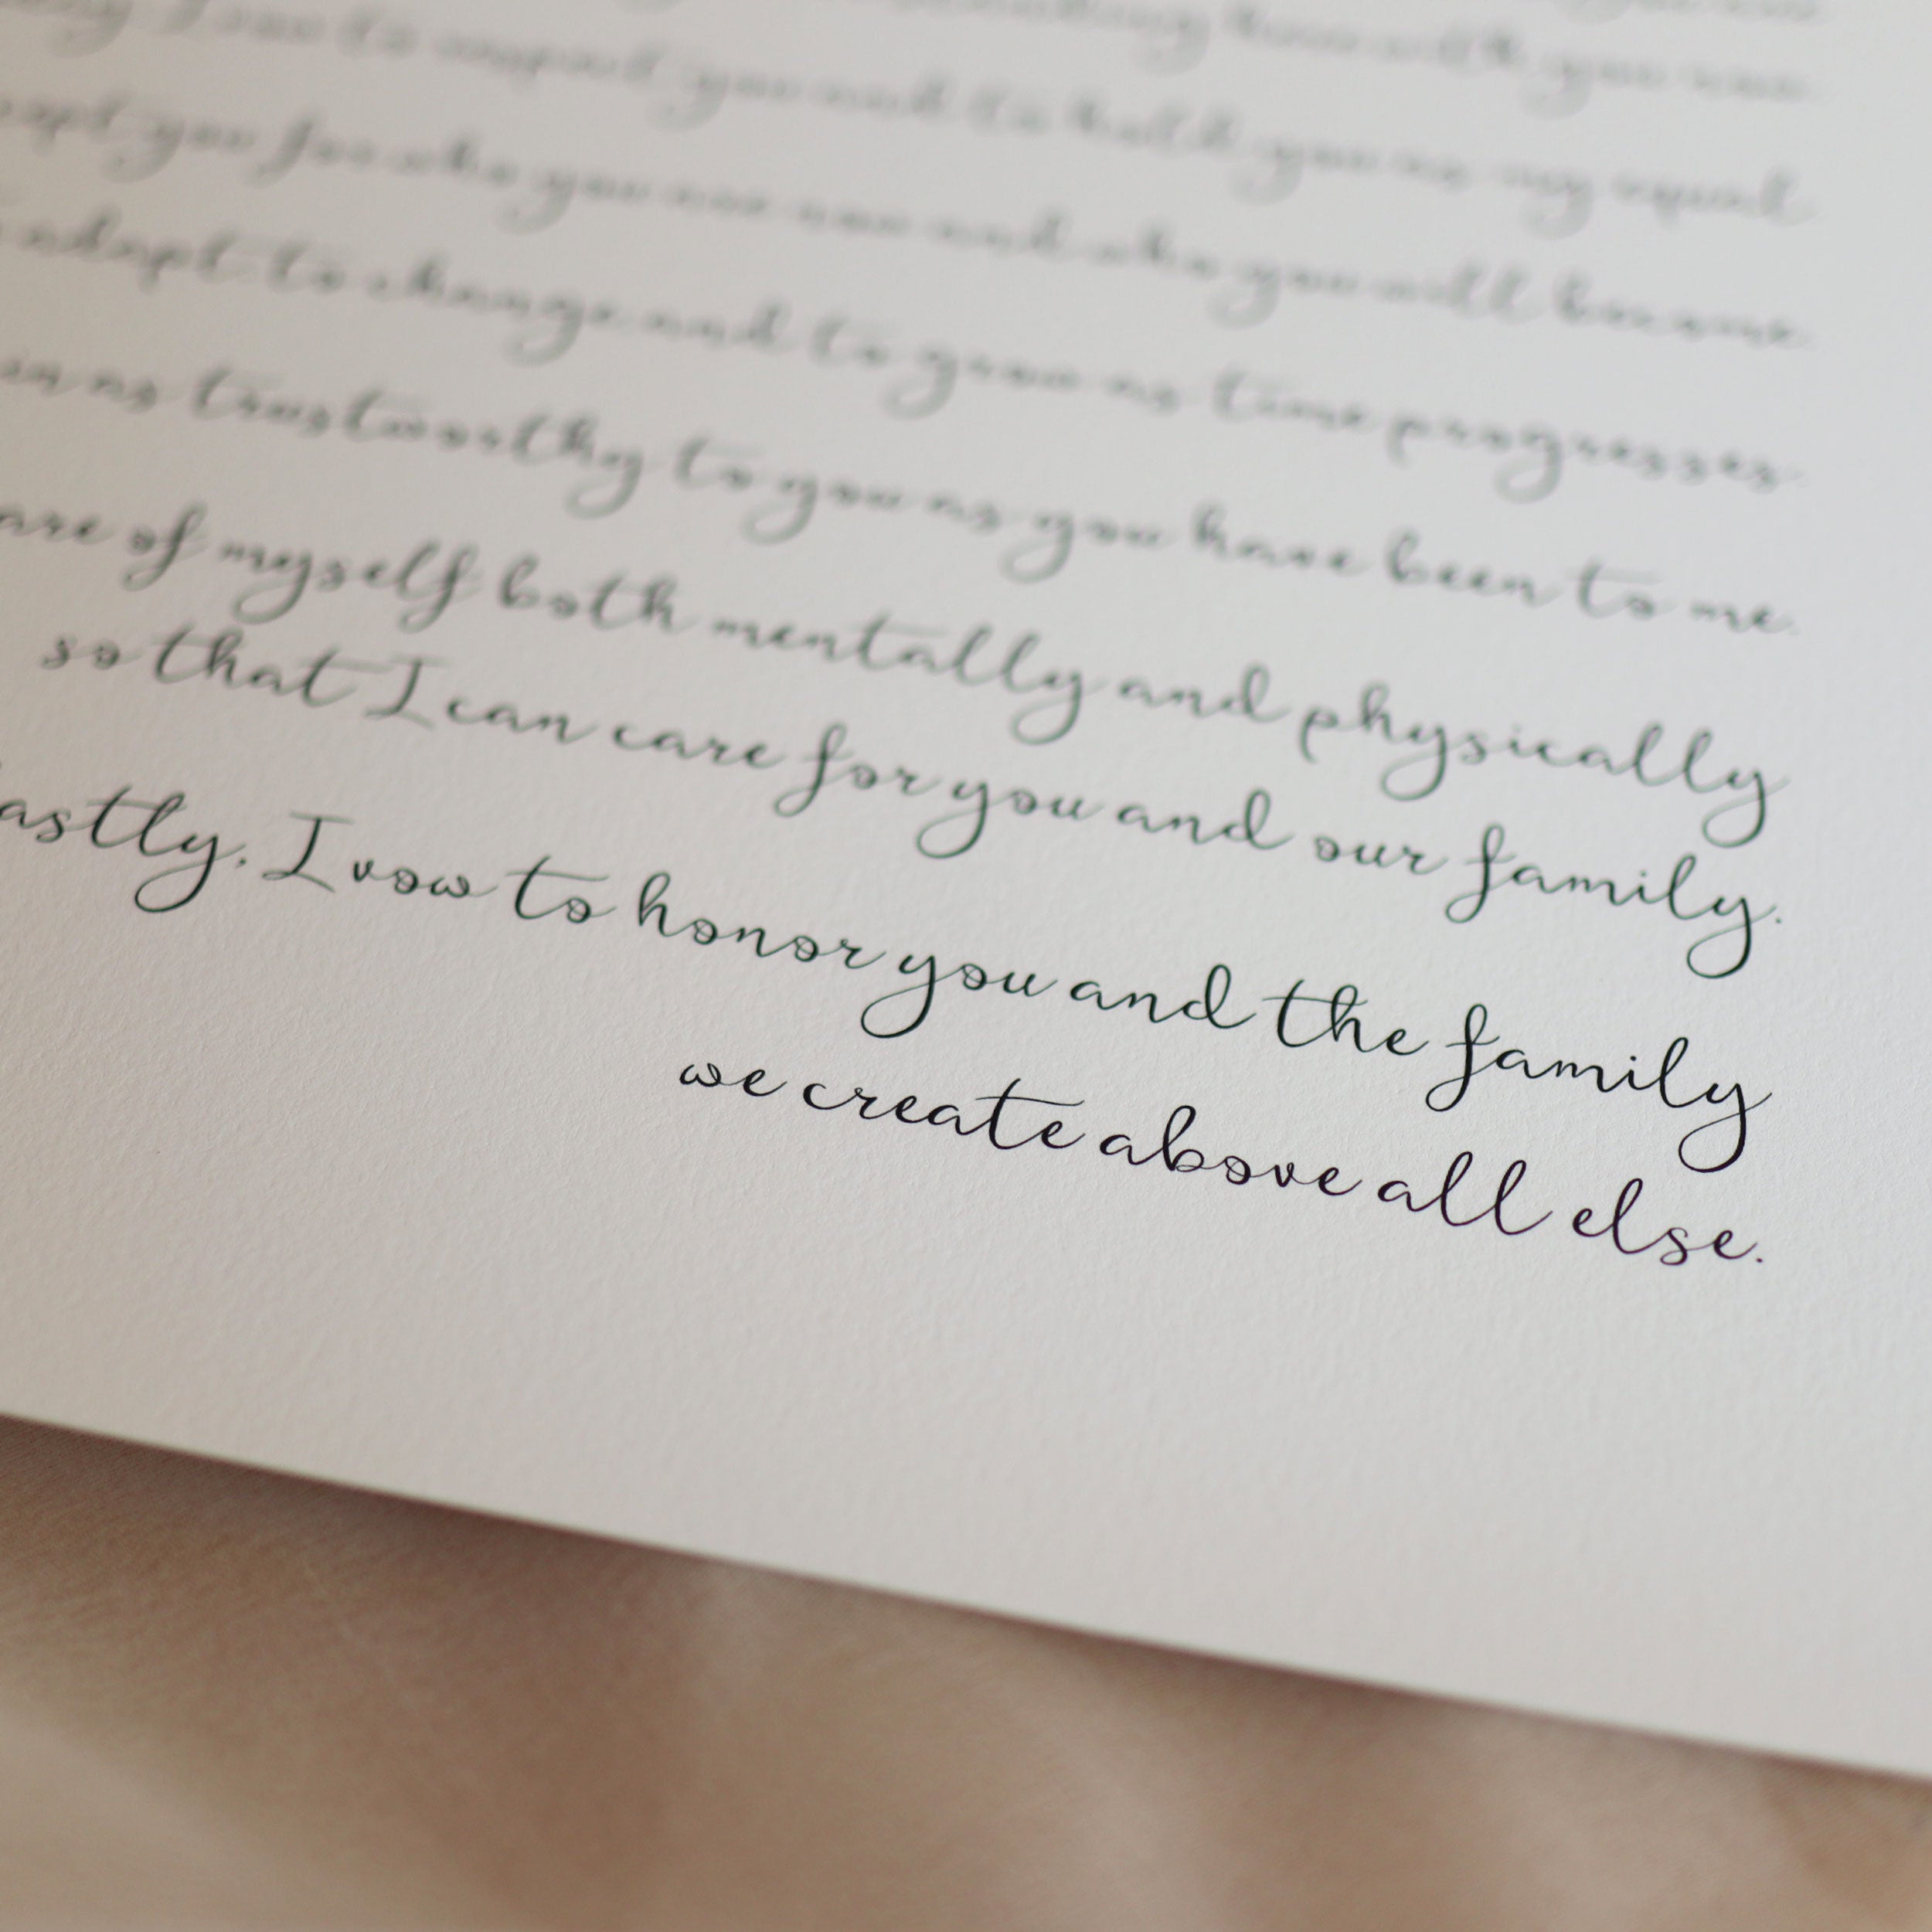 time with you
I vow to respect you and to hold you as my equal
you for who you are now and who you will become
adapt to change and to grow as time progresses
as trustworthy to you as you have been to me.
of myself both mentally and physically
so that I can care for you and our family.
astly, I vow to honor you and the family
we create above all else.